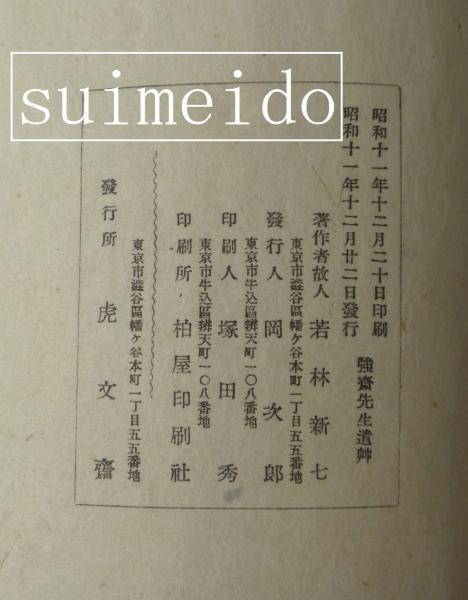 suimeido
昭和十一年十二月二十日印刷
昭和十一年十二月廿二日發行
強齋先生遺艸
著作者故人 若林新七
東京市澁谷區幡ケ谷本町一丁目五五番地
發行人 岡次郎
東京市牛込區辨天町一〇八番地
印刷人 塚田秀
東京市牛込區辨天町一〇八番地
印刷所 柏屋印刷社
東京市澁谷區幡ケ谷本町一丁目五五番地
發行所 虎文齋